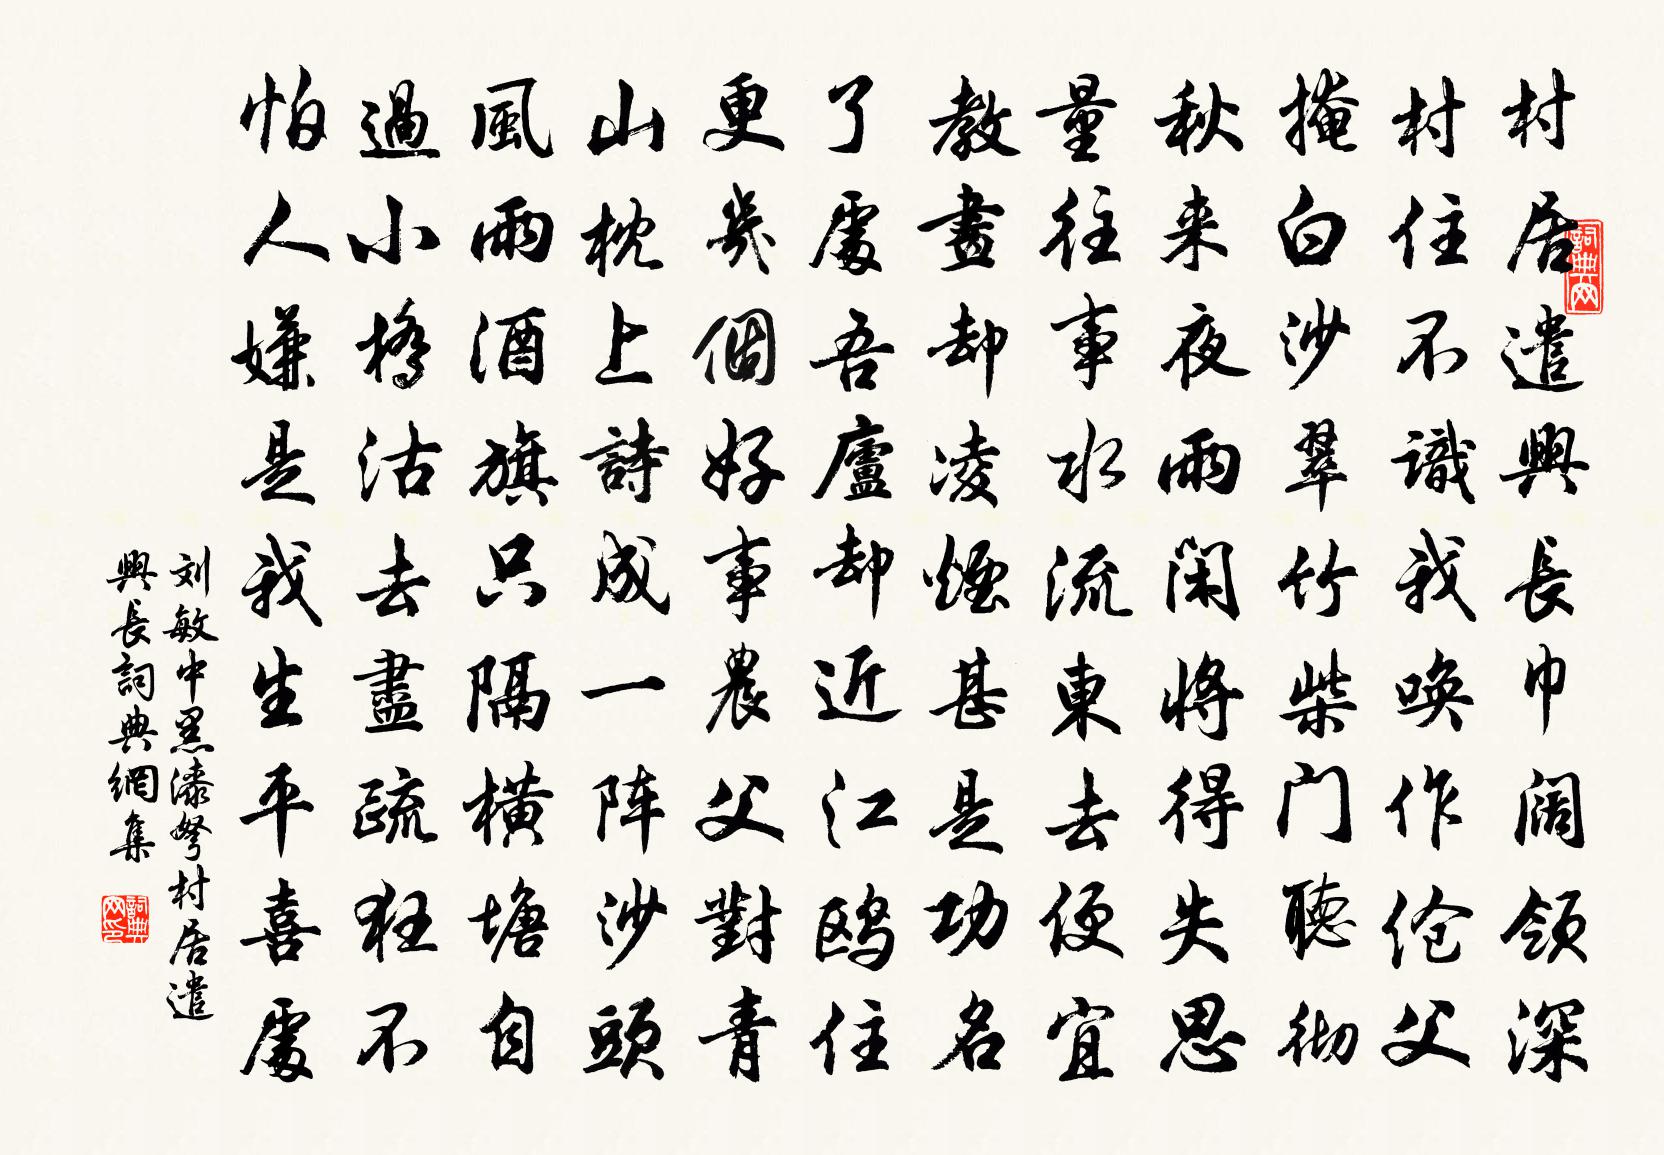 村居遣興長巾闊領深
村住不識我喚作伧父
掩白沙翠竹柴门聽彻
秋来夜雨闲將得失思
量往事水流東去便宜
教畫却凌煙甚是功名
了處吾廬却近江鸥住
更幾個好事農父對青
山枕上詩成一阵沙頭
風雨酒旗只隔橫塘自
過小橋沽去盡疏狂不
怕人嫌是我生平喜處
刘敏中黑漆弩村居遣
興長詞典網集
詞典网
詞典网印